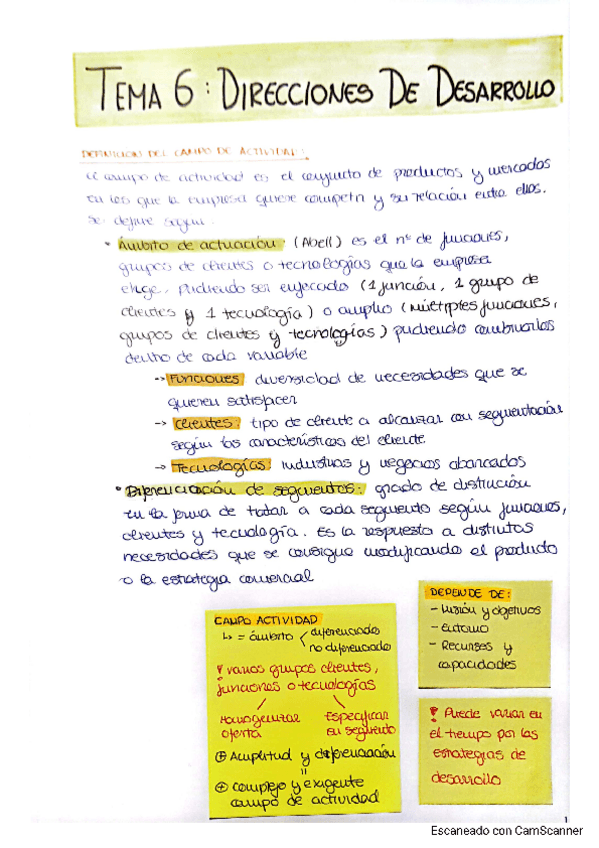 TEMA 6: DIRECCIONES DE DESARROLLO
DEFINICIÓN DEL CAMPO DE ACTIVIDAD:
El campo de actividad es el conjunto de productos y mercados
en los que la empresa quiere competir y su relación entre ellos.
Se define según:
• Ámbito de actuación: (Abell) es el nº de funciones,
grupos de clientes o tecnologías que la empresa
elige, pudiendo ser enfocado (1 función, 1 grupo de
clientes y 1 tecnología) o amplio (múltiples funciones,
grupos de clientes y tecnologías) pudiendo combinarlos
dentro de cada variable
-> Funciones: diversidad de necesidades que se
quieren satisfacer
-> Clientes: tipo de cliente a alcanzar con segmentación
según las características del cliente
-> Tecnologías: industrias y negocios abarcados
• Diferenciación de segmentos: grado de distinción
en la forma de tratar a cada segmento según funciones,
clientes y tecnología. Es la respuesta a distintas
necesidades que se consigue modificando el producto
o la estrategia comercial
CAMPO ACTIVIDAD
↳ = ámbito < diferenciado
no diferenciado
! varios grupos clientes,
funciones o tecnologías
Homogeneizar oferta
Especificar su segmento
⊕ Amplitud y diferenciación
=
⊕ complejo y exigente
campo de actividad
DEPENDE DE:
- Misión y objetivos
- Entorno
- Recursos y
capacidades
! Puede variar en
el tiempo por las
estrategias de
desarrollo
1
Escaneado con CamScanner